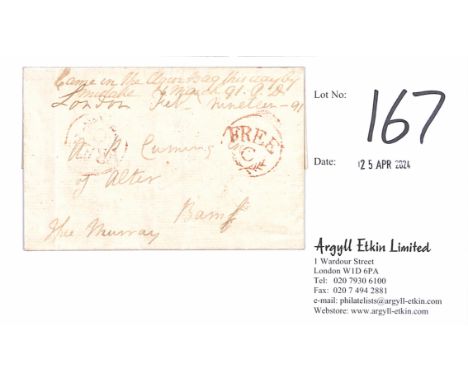 Came in the down bag this way by
mistake 6 March 91. P.D.
London Feb nineteen - 91
FREE
C
A. P. Cuming
of Alter
Bamff
Hu Murray
Lot No:
167
Date:
25 APR 2024
Argyll Etkin Limited
1 Wardour Street
London W1D 6PA
Tel: 020 7930 6100
Fax: 020 7 494 2881
e-mail: philatelists@argyll-etkin.com
Webstore: www.argyll-etkin.com